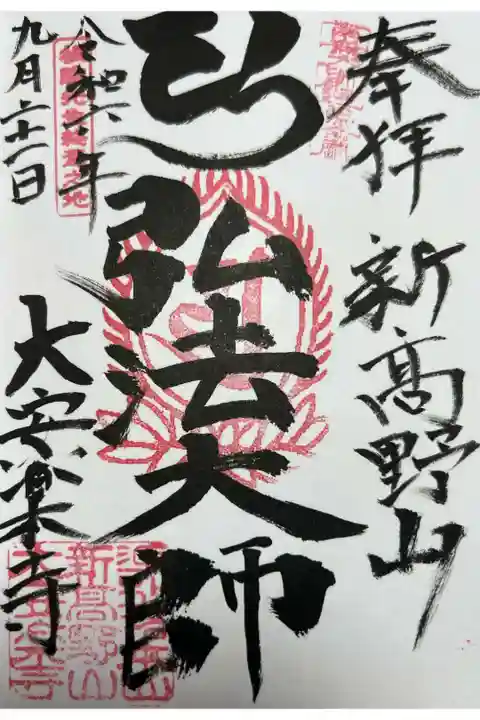 奉拝 新高野山
弘法大師
令和六年
九月二十一日
大安楽寺
新高野山